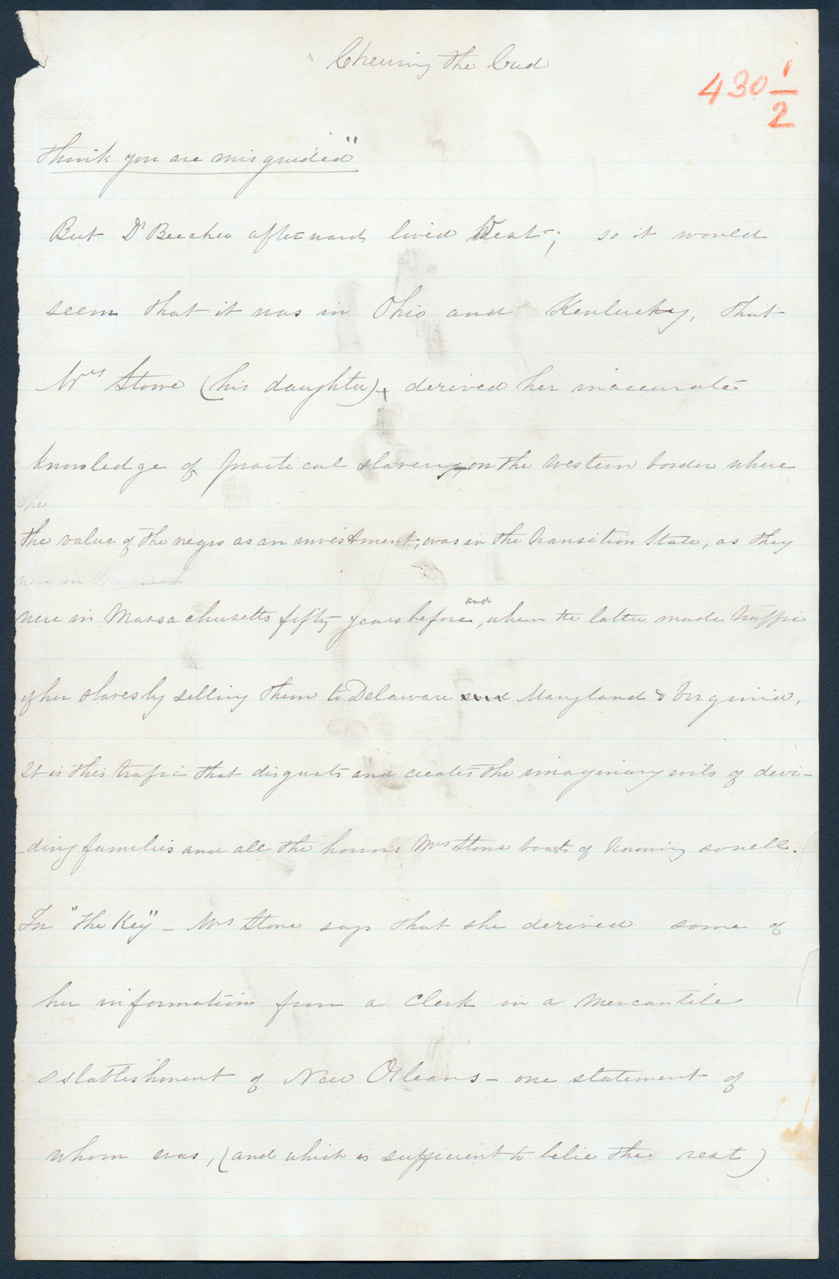 Chewing the Cud
430 1/2
think you are misguided"
But Dr Beecher afterwards lived West; so it would
seem that it was in Ohio and Kentucky, that
Mrs Stowe (his daughter), derived her inaccurate
knowledge of practical slavery, on the western border where
the
the value of the negro as an investment, was in the transition State, as they
were in
were in Massachusetts fifty years before and, when the latter made traffic
of her slaves by selling them to Delaware and Maryland & Virginia,
It is this trafic that disgusts and creates the imaginary evils of devi-
ding families and all the horrors Mrs Stowe boasts of knowing so well.
In "The Key" - Mrs Stowe says that she derived some of
her information from a Clerk in a Mercantile
establishment of New Orleans - one statement of
whom was, (and which is sufficient to belie the rest)